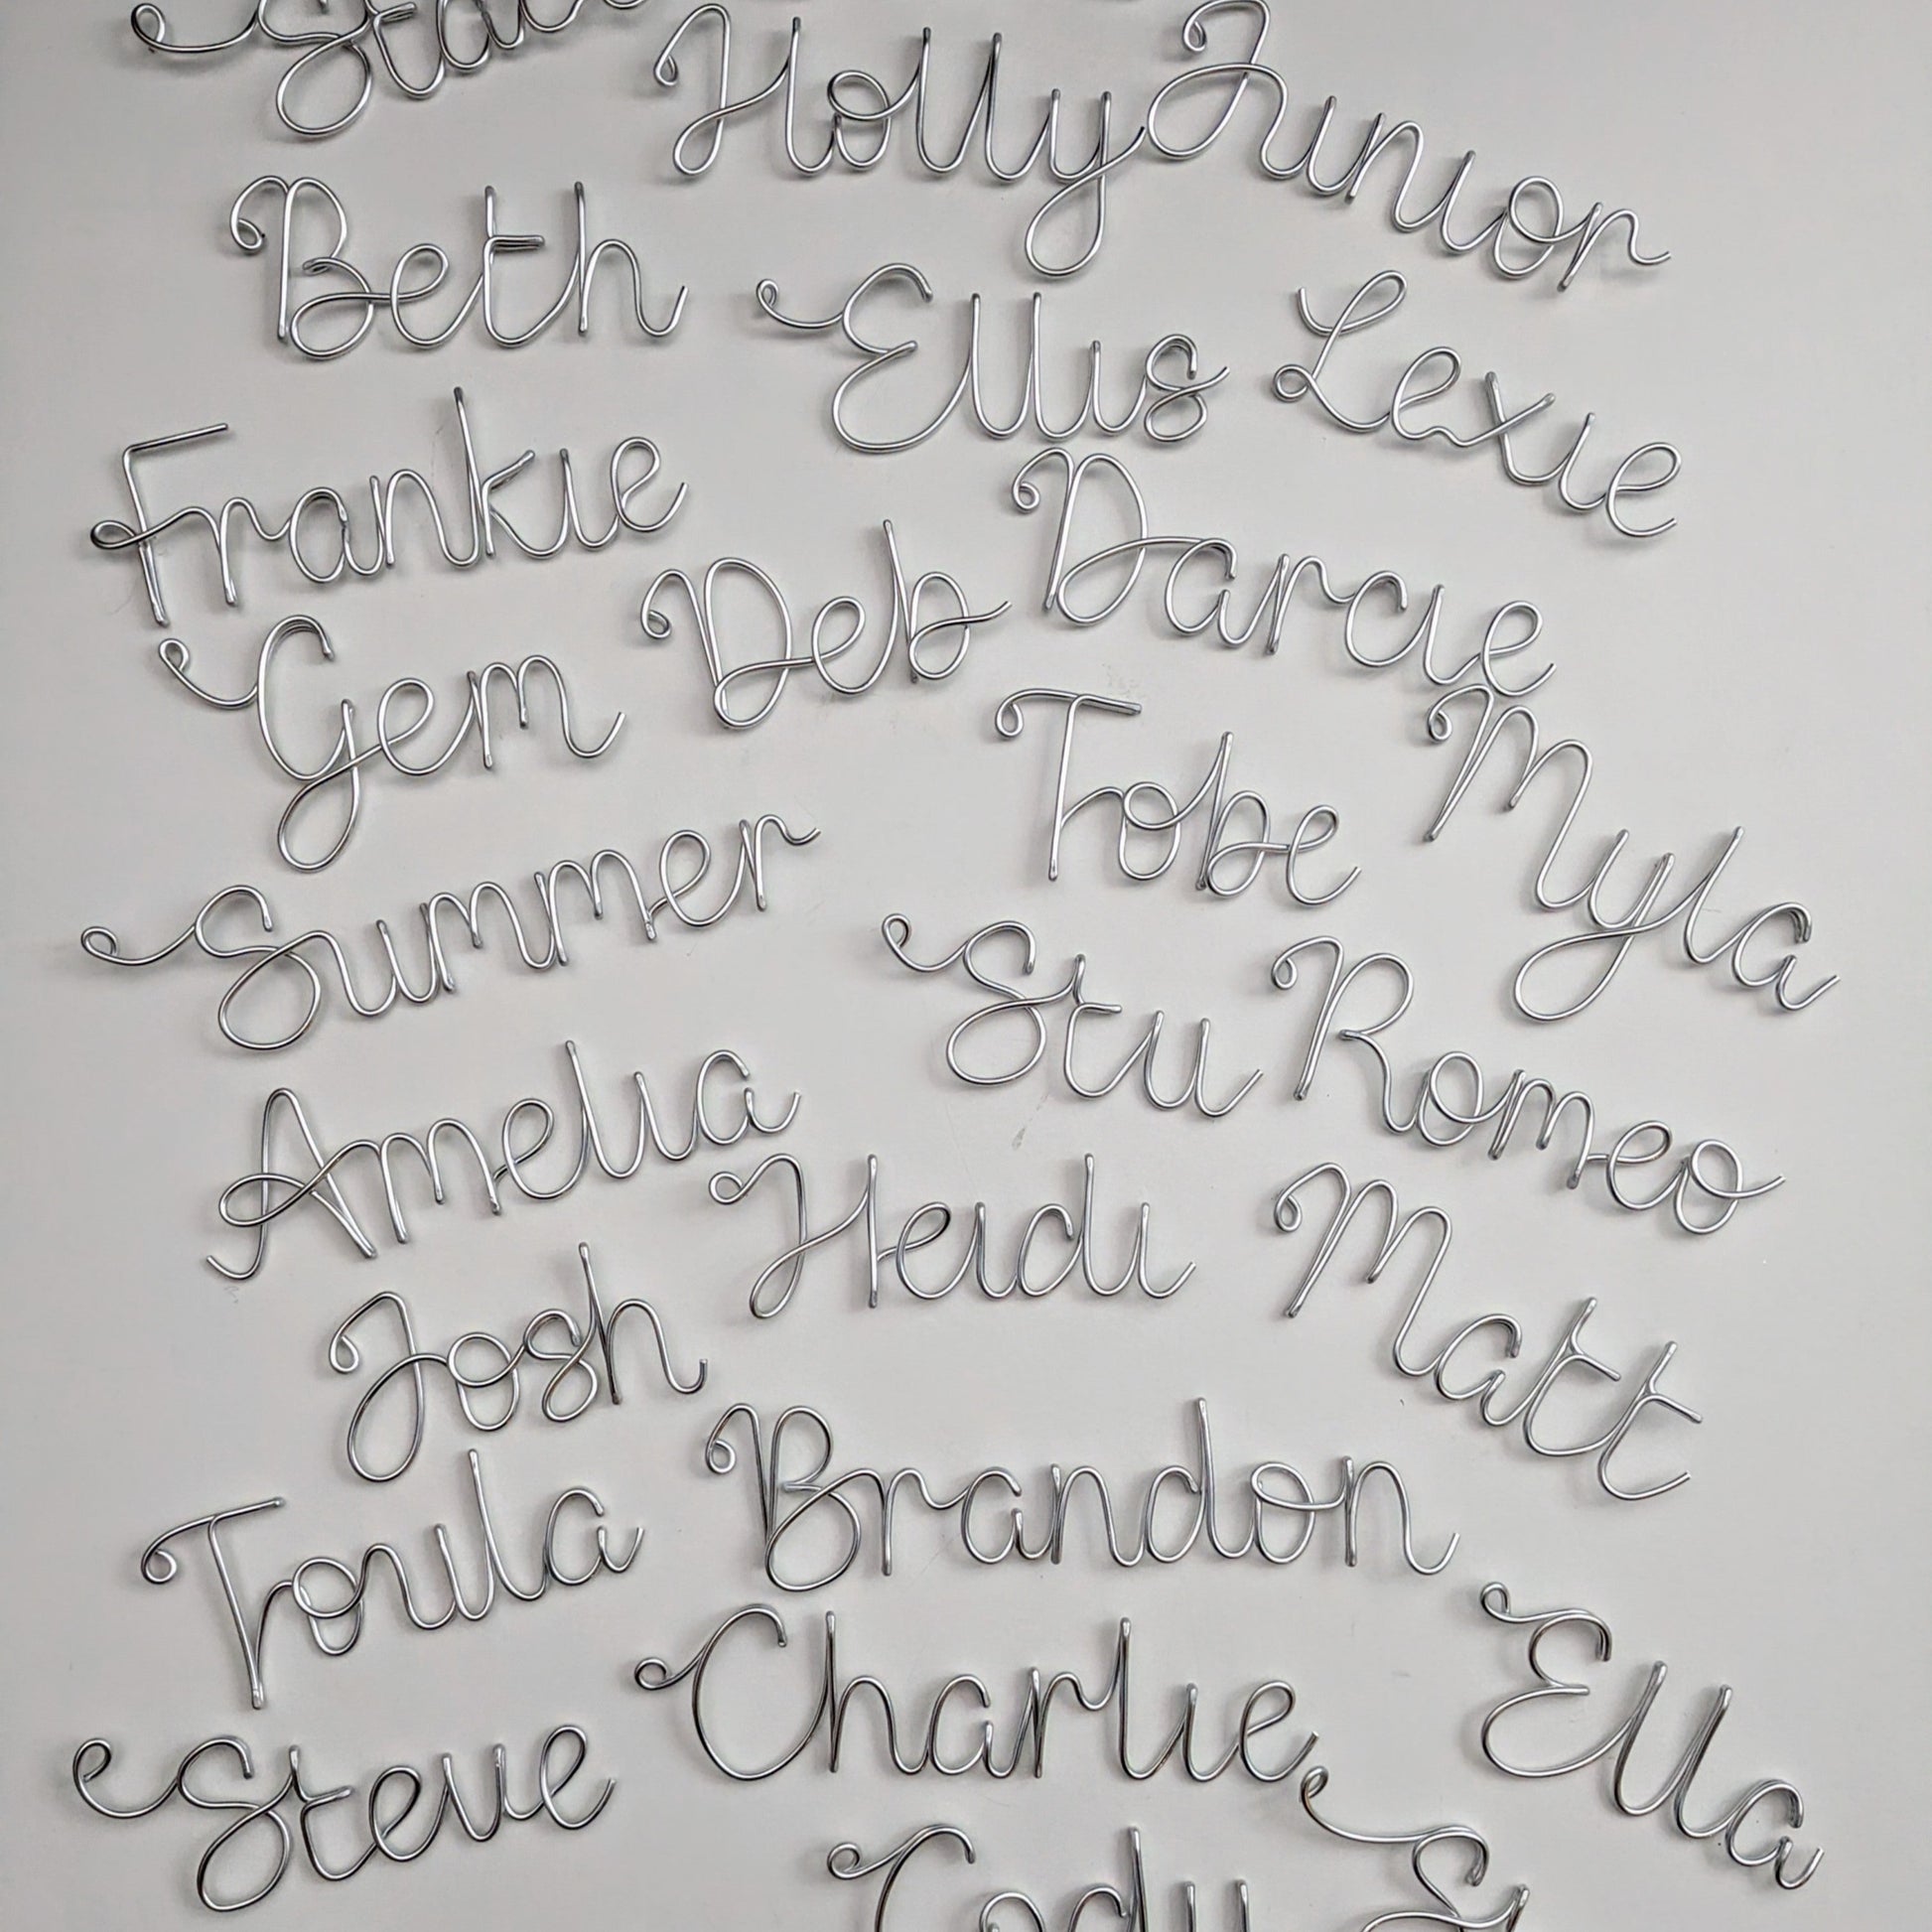 Holly Junior
Beth
Ellis Lexie
Frankie
Darcie
Gem Deb
Tobe Myla
Summer
Stu Romeo
Amelia
Heidi Matt
Josh
Brandon
Toula
Charlie Ella
Steve
Cody